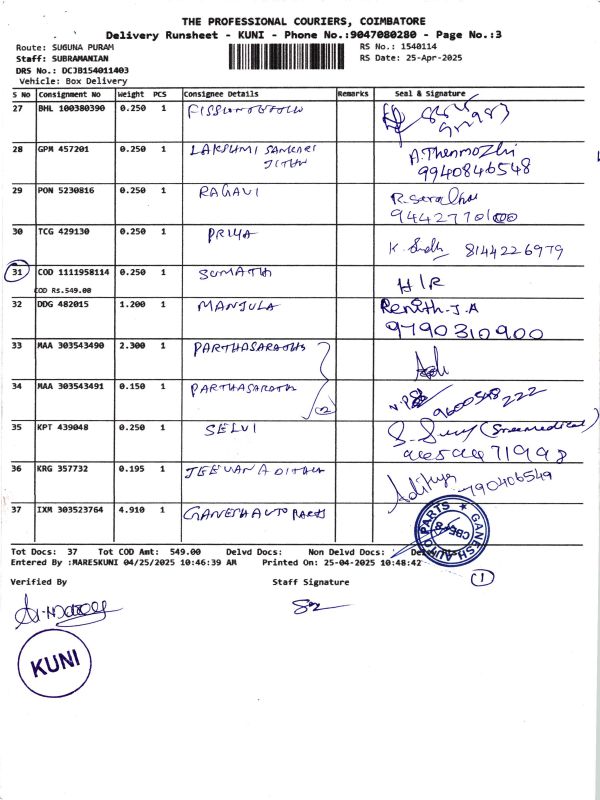 THE PROFESSIONAL COURIERS, COIMBATORE
Delivery Runsheet - KUNI - Phone No.:9047080280 - Page No.:3
Route: SUGUNA PURAM
RS No.: 1540114
Staff: SUBRAMANIAN
RS Date: 25-Apr-2025
DRS No.: DCJB154011403
Vehicle: Box Delivery
S No Consignment No Weight PCS Consignee Details Remarks Seal & Signature
27 BHL 100380390 0.250 1
28 GPM 457201 0.250 1 LAKSHMI SANKARI A.Thenmozhi
JITHU 9940846548
29 PON 5230816 0.250 1 RAGAVI
30 TCG 429130 0.250 1 PRIYA K. 8144226979
31 COD 1111958114 0.250 1 SUMATHI H/R
COD Rs.549.00
32 DDG 482015 1.200 1 MANJULA Renith.J.A
9790310900
33 MAA 303543490 2.300 1 PARTHASARATHY
34 MAA 303543491 0.150 1 PARTHASARATHY 9600548222
(2)
35 KPT 439048 0.250 1 SELVI
36 KRG 357732 0.195 1 JEEVAN ADITHYA Aditya
790406549
37 IXM 303523764 4.910 1 GANESH AUTO PARTS
GANESH AUTO PARTS
CBE-8
Tot Docs: 37 Tot COD Amt: 549.00 Delvd Docs: Non Delvd Docs:
Entered By :MARESKUNI 04/25/2025 10:46:39 AM Printed On: 25-04-2025 10:48:42
(1)
Verified By Staff Signature
KUNI